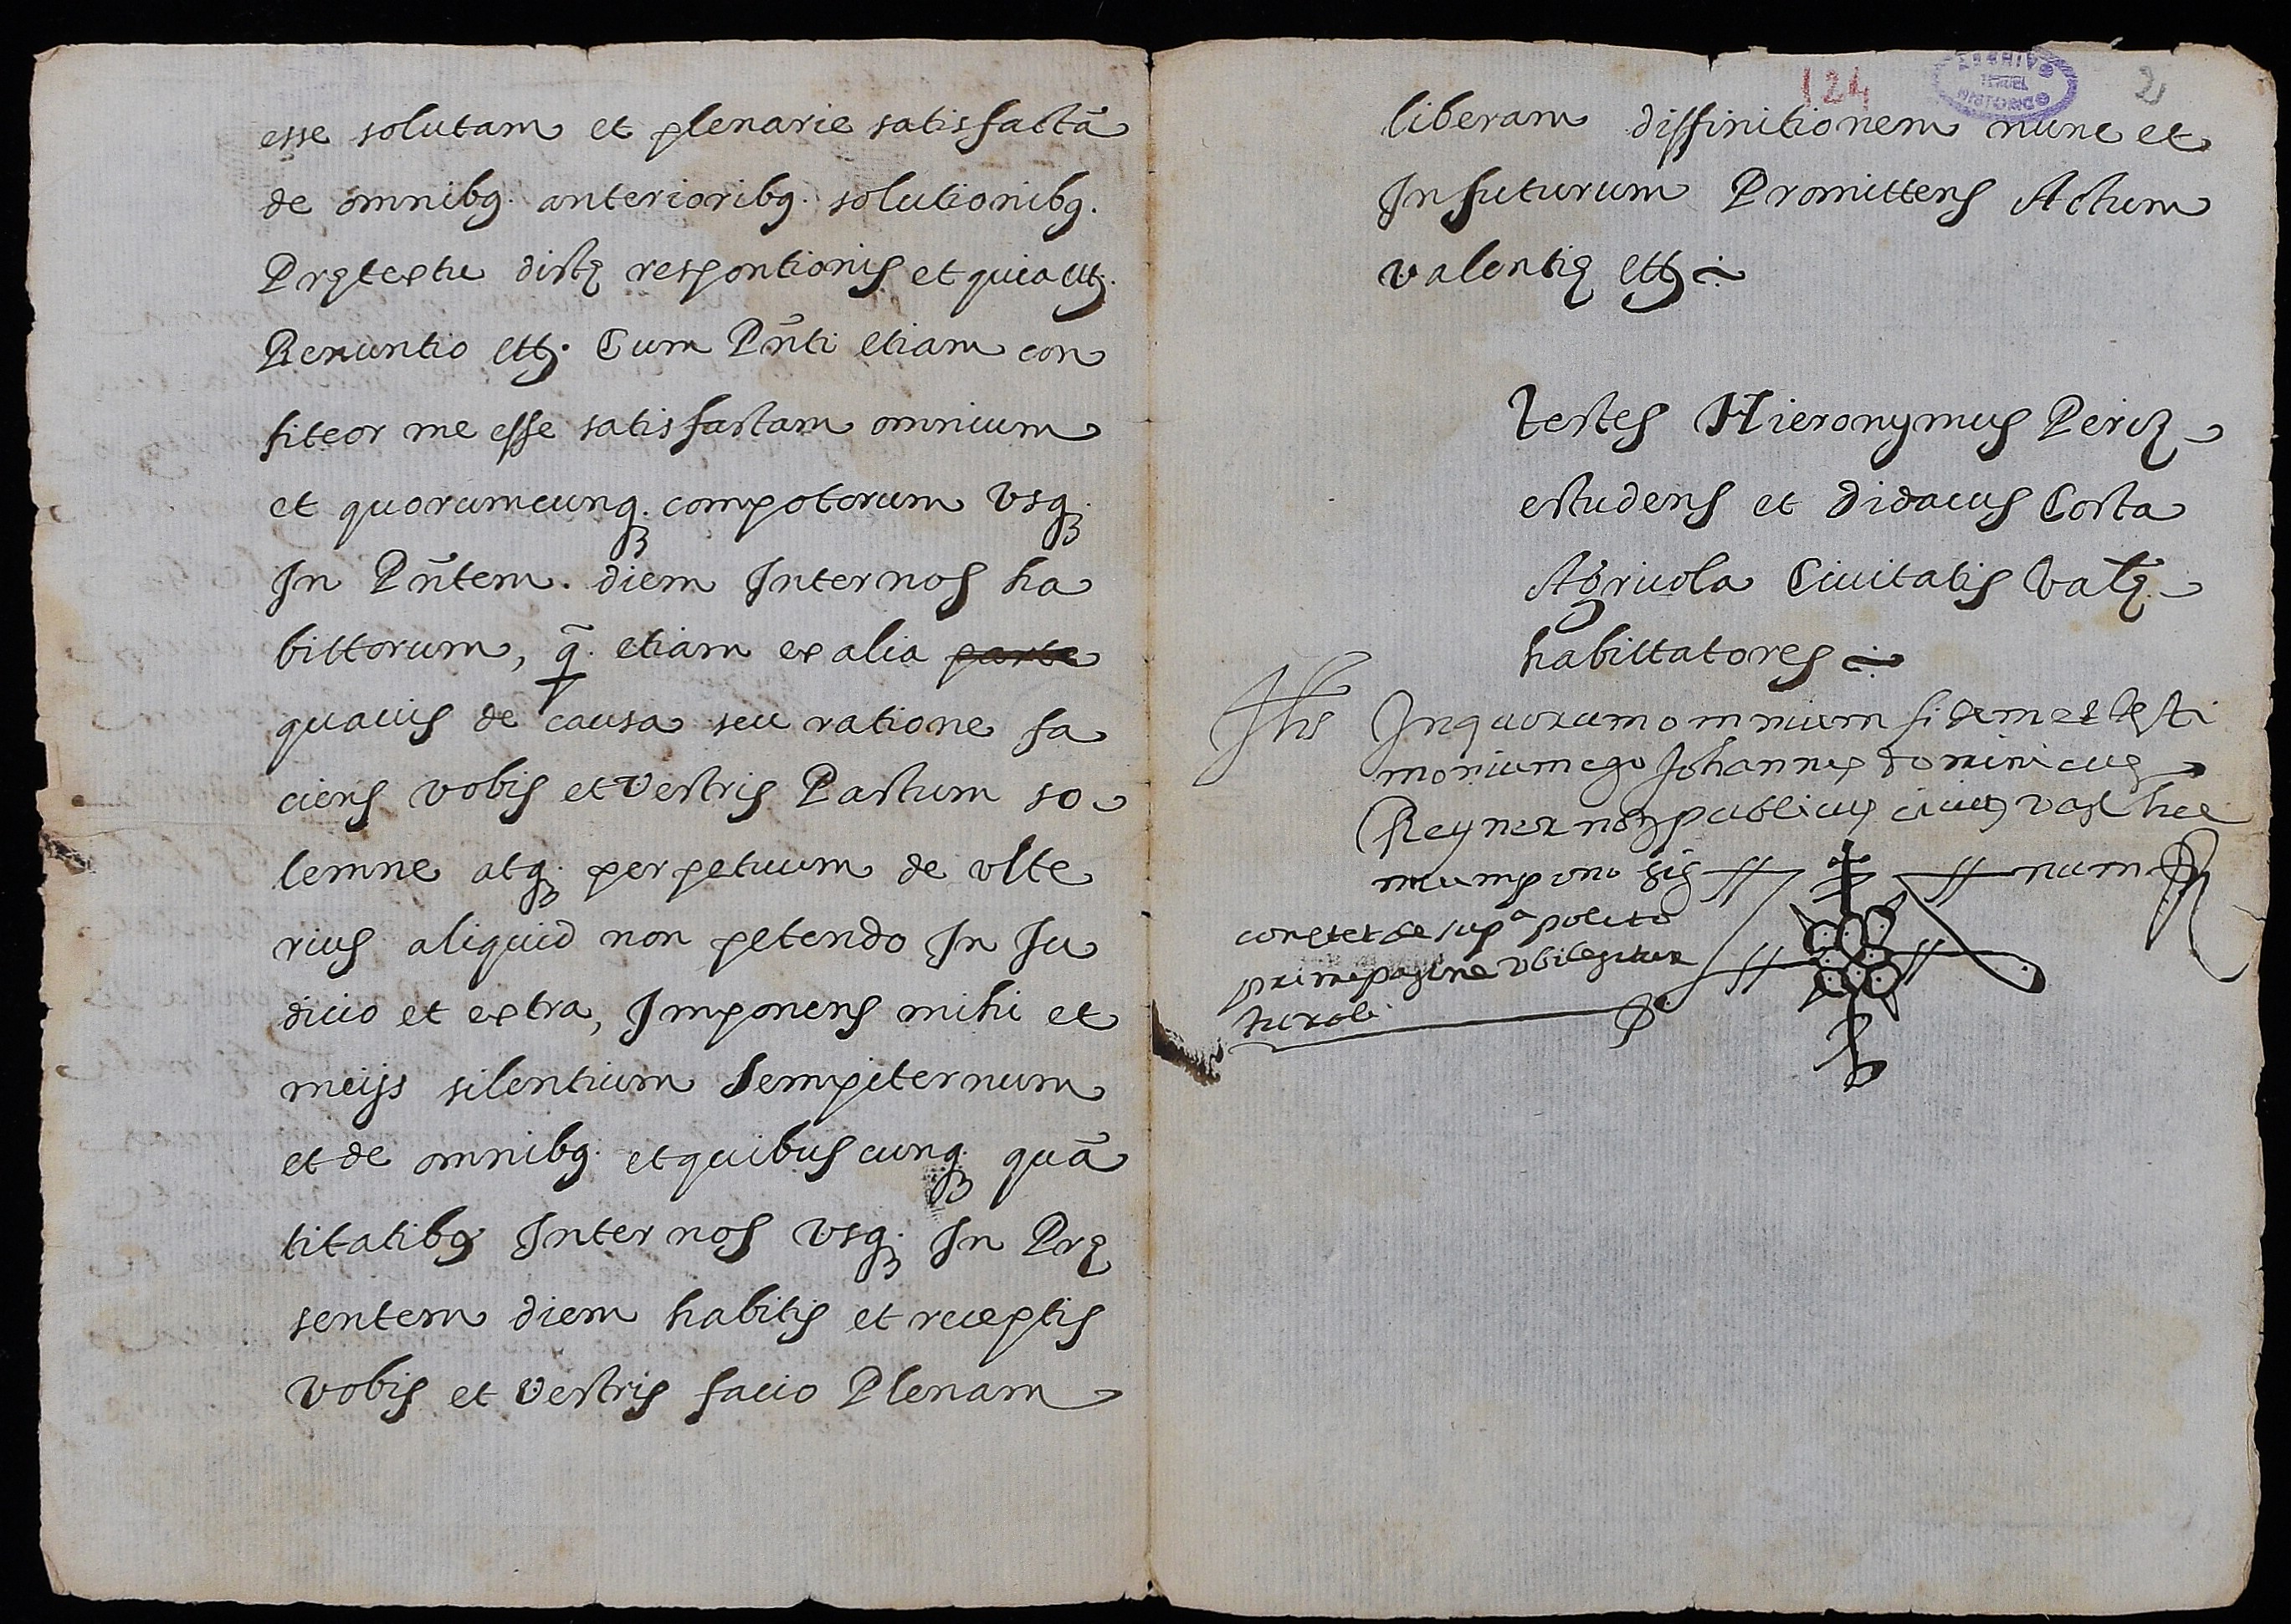 esse solutam et plenarie satisfactã
de omnibꝯ. anterioribꝯ. solutionibꝯ.
Pręteptu dictę respontionis et quia ettz.
Renuntio ettz. Cum Pñti etiam con
fiteor me esse satisfactam omnium
et quorumcunqȝ. compotorum vsqȝ.
In Pñtem. diem Internos ha
bittorum, q̃. etiam ex alia parte
quauis de causa seu ratione fa
ciens vobis et Vestris Pactum so
lemne atqȝ. perpetuum de vlte
rius aliquid non petendo In Ju
dicio et extra, Imponens mihi et
meijs silentium Sempiternum
et de omnibꝯ. et quibuscunqȝ. quã
titatibꝯ Internos vsqȝ. In Prę
sentem diem habitis et receptis
vobis et Vestris facio Plenam
124
2
liberam diffinitionem nunc et
In futurum Promittens Actum
valentię ettz
Testes Hieronymus Perez
estudens et Didacus Costa
Agricola Ciuitatis Valę.
habittatores
Jhs In quorum omnium fidem et testi
monium ego Johannes dominicus
Reyner notz publicus ciuis val hec
meum pono sig num
constet de supª posito
prime pagine vbi legitur
turoli